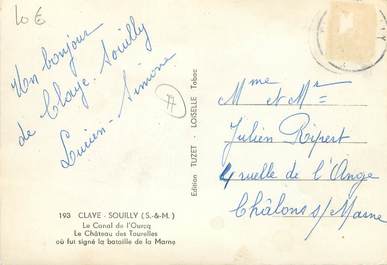 10 €
Un bonjour
de Claye. Souilly
Lucien - Simone
193 CLAYE - SOUILLY (S.-&-M.)
Le Canal de l'Ourcq
Le Château des Tourelles
où fut signé la bataille de la Marne
Edition TUZET - LOISELLE Tabac
Mme et Mr
Julien Ripert
4 ruelle de l'Ange
Châlons s/Marne